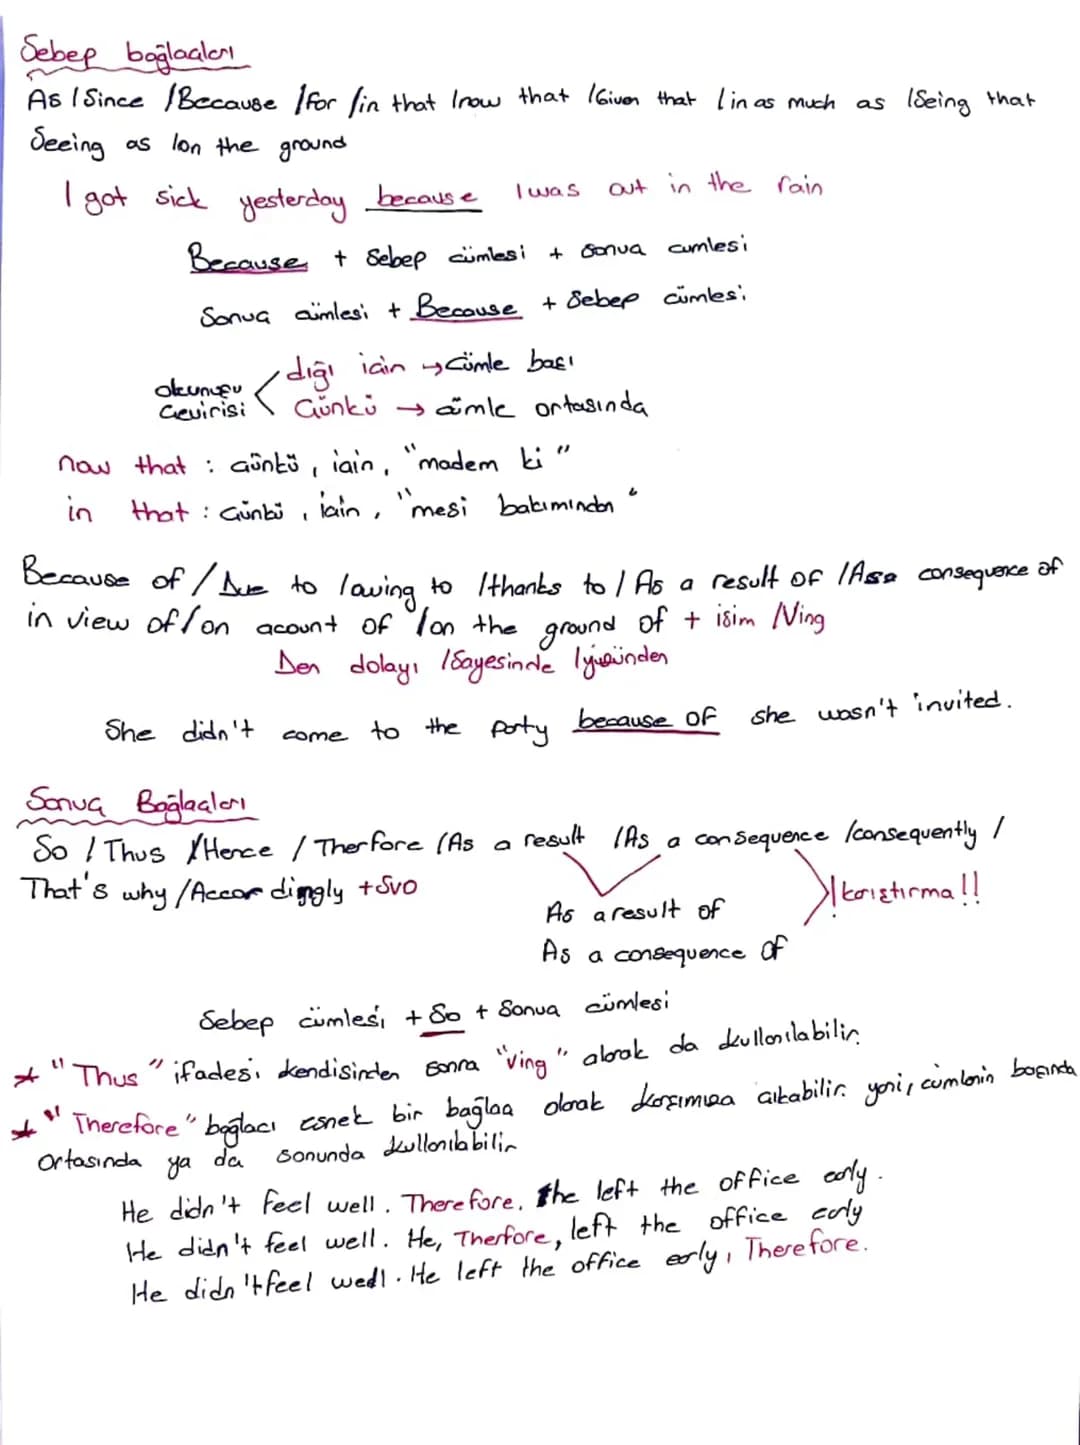 Sebep bağlaçları
As / Since / Because / for / in that / now that / Given that / in as much as / Seing that
Seeing as / on the ground
I got sick yesterday because I was out in the rain
Because + Sebep cümlesi + Sonuç cumlesi
Sonuç cümlesi + Because + Sebep cümlesi
okunuşu dığı için → Cümle başı
Çevirisi Çünkü → cümle ortasında
now that : çünkü, için, "madem ki"
in that : Çünkü, için, "mesi bakımından"
Because of / Due to / owing to / thanks to / As a result of / As a consequence of
in view of / on acount of / on the ground of + isim / Ving
Den dolayı / Sayesinde / yüzünden
She didn't come to the party because of she wasn't invited.
Sonuç Bağlaçları
So / Thus / Hence / Therfore / As a result / As a consequence / consequently /
That's why / Accordingly + SVO
As a result of karıştırma!!
As a consequence of
Sebep cümlesi + So + Sonuç cümlesi
* "Thus" ifadesi kendisinden sonra "ving" olarak da kullanılabilir.
* "Therefore" bağlacı esnek bir bağlaç olarak karşımıza çıkabilir. yani, cümlenin başında
ortasında ya da sonunda kullanılabilir
He didn't feel well. Therefore, he left the office early.
He didn't feel well. He, Therfore, left the office early
He didn't feel well. He left the office early, Therefore.